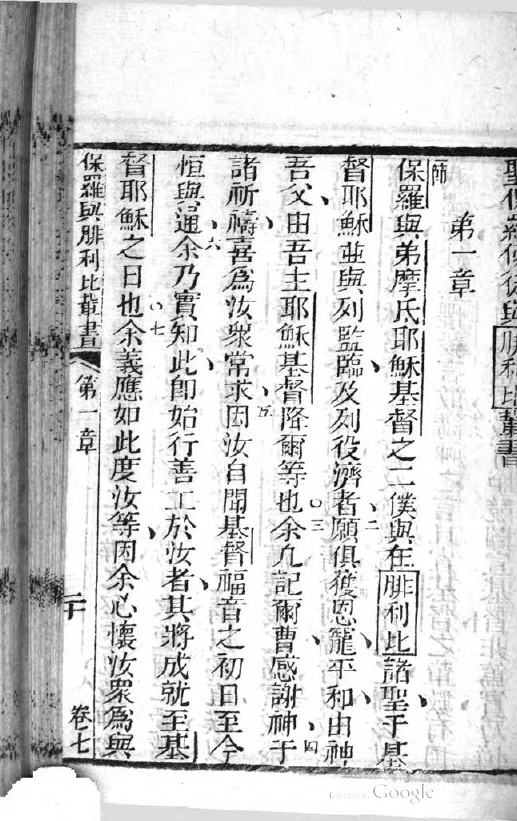 聖保羅使徒與腓利比輩書
第一章
節
保羅與弟摩氏耶穌基督之二僕與在腓利比諸聖于基
督耶穌並與列監臨及列役濟者二願俱獲恩寵平和由神
吾父由吾主耶穌基督降爾等也三余凡記爾曹感謝神四于
諸祈禱喜為汝衆常求五因汝自聞基督福音之初日至今
恒與通六余乃實知此卽始行善工於汝者其將成就至基
督耶穌之日也七余義應如此度汝等因余心懷汝衆為與
保羅與腓利比輩書 第一章 二十 卷七
Digitized by Google